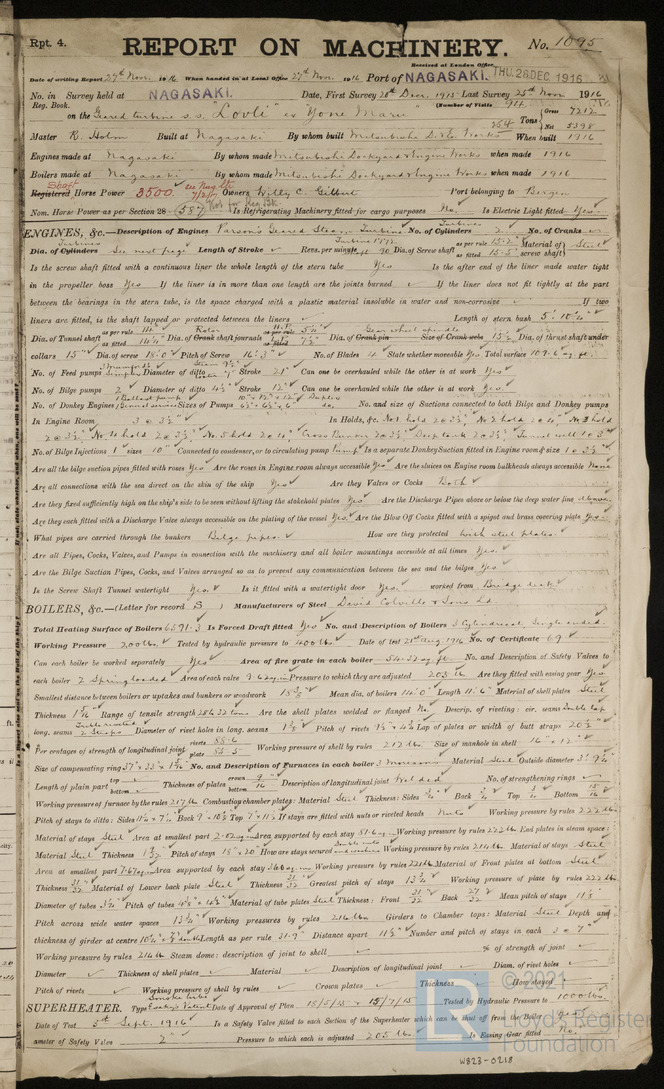 Rpt. 4.
REPORT ON MACHINERY. No. 1095
Received at London Office
Date of writing Report 27th Nov. 1916 When handed in at Local Office 27th Nov. 1916 Port of NAGASAKI. THU. 28 DEC. 1916
No. in Survey held at NAGASAKI. Date, First Survey 28th Dec. 1915 Last Survey 25th Nov 1916
Reg. Book. (Number of Visits 94)
on the Geared turbine s.s. "Lovli" ex "Yone Maru" Tons Gross 7212 Net 5398
Master R. Holm Built at Nagasaki By whom built Mitsubishi D. & E. Works When built 1916
Engines made at Nagasaki By whom made Mitsubishi Dockyard & Engine Works when made 1916
Boilers made at Nagasaki By whom made Mitsubishi Dockyard & Engine Works when made 1916
Shaft
Registered Horse Power 3500. Owners Willy C. Gilbert Port belonging to Bergen
Nom. Horse Power as per Section 28 587 Not for Reg. Bk. Is Refrigerating Machinery fitted for cargo purposes No. Is Electric Light fitted Yes.
ENGINES, &c.—Description of Engines Parson's Geared Steam Turbine No. of Cylinders 2 No. of Cranks
Dia. of Cylinders See next page Length of Stroke Revs. per minute 90 Dia. of Screw shaft as per rule 15.2" as fitted 15.5" Material of screw shaft Steel
Is the screw shaft fitted with a continuous liner the whole length of the stern tube Yes Is the after end of the liner made water tight
in the propeller boss Yes If the liner is in more than one length are the joints burned If the liner does not fit tightly at the part
between the bearings in the stern tube, is the space charged with a plastic material insoluble in water and non-corrosive If two
liners are fitted, is the shaft lapped or protected between the liners Length of stern bush 5' 10¾"
Dia. of Tunnel shaft as per rule 14" as fitted 14¼" Dia. of Crank shaft journals as per rule 5¾" as fitted 7½" Dia. of Crank pin Size of Crank webs 15½ Dia. of thrust shaft under
collars 15" Dia. of screw 18'.0" Pitch of Screw 16'.3" No. of Blades 4 State whether moveable Yes Total surface 109.6 sq. ft.
No. of Feed pumps Diameter of ditto Stroke 21" Can one be overhauled while the other is at work Yes
No. of Bilge pumps 2 Diameter of ditto 4½" Stroke 12" Can one be overhauled while the other is at work Yes
No. of Donkey Engines Sizes of Pumps No. and size of Suctions connected to both Bilge and Donkey pumps
In Engine Room 3 @ 3½" In Holds, &c. No 1 hold 2 @ 3½, No 2 hold 2 @ 4, No 3 hold
2 @ 3½, No. 4 hold 2 @ 3½, No. 5 hold 2 @ 4", Cross Bunker 2 @ 3½ Deep tank 2 @ 3½ Tunnel well 1 @ 3"
No. of Bilge Injections 1 sizes 10" Connected to condenser, or to circulating pump Pump Is a separate Donkey Suction fitted in Engine room & size 1 @ 3½"
Are all the bilge suction pipes fitted with roses Yes Are the roses in Engine room always accessible Yes Are the sluices on Engine room bulkheads always accessible None
Are all connections with the sea direct on the skin of the ship Yes Are they Valves or Cocks Both
Are they fixed sufficiently high on the ship's side to be seen without lifting the stokehold plates Yes Are the Discharge Pipes above or below the deep water line Above
Are they each fitted with a Discharge Valve always accessible on the plating of the vessel Yes Are the Blow Off Cocks fitted with a spigot and brass covering plate Yes.
What pipes are carried through the bunkers Bilge pipes. How are they protected With steel plates.
Are all Pipes, Cocks, Valves, and Pumps in connection with the machinery and all boiler mountings accessible at all times Yes.
Are the Bilge Suction Pipes, Cocks, and Valves arranged so as to prevent any communication between the sea and the bilges Yes
Is the Screw Shaft Tunnel watertight Yes. Is it fitted with a watertight door Yes. worked from Bridge deck
BOILERS, &c.—(Letter for record S) Manufacturers of Steel David Colville & Sons Ld.
Total Heating Surface of Boilers 6591.3 Is Forced Draft fitted Yes No. and Description of Boilers 3 Cylindrical Single ended.
Working Pressure 200 lbs. Tested by hydraulic pressure to 400 lbs. Date of test 21st Aug. 1916 No. of Certificate 69
Can each boiler be worked separately Yes Area of fire grate in each boiler 54.32 sq. ft. No. and Description of Safety Valves to
each boiler 2 Spring loaded Area of each valve 9.62 sq. in. Pressure to which they are adjusted 205 lb. Are they fitted with easing gear Yes
Smallest distance between boilers or uptakes and bunkers or woodwork 18⅜ Mean dia. of boilers 14'.0" Length 11'.6" Material of shell plates Steel
Thickness Range of tensile strength 28 & 32 tons Are the shell plates welded or flanged No Descrip. of riveting: cir. seams Double lap
long. seams Diameter of rivet holes in long. seams Pitch of rivets Lap of plates or width of butt straps 20½"
Per centages of strength of longitudinal joint rivets 88.6 plate 85.5 Working pressure of shell by rules 212 lb. Size of manhole in shell 16" x 12"
Size of compensating ring No. and Description of Furnaces in each boiler 3 Morison Material Steel Outside diameter 3' 9¼"
Length of plain part top bottom Thickness of plates crown bottom Description of longitudinal joint Welded No. of strengthening rings
Working pressure of furnace by the rules 217 lb Combustion chamber plates: Material Steel Thickness: Sides Back Top Bottom
Pitch of stays to ditto: Sides Back Top If stays are fitted with nuts or riveted heads Nuts Working pressure by rules 222 lbs.
Material of stays Steel Area at smallest part 2.02 sq in Area supported by each stay 81.6 sq. in. Working pressure by rules 222 lb. End plates in steam space:
Material Steel Thickness Pitch of stays 18" x 20" How are stays secured Working pressure by rules 214 lb. Material of stays Steel
Area at smallest part 7.67 sq in Area supported by each stay 360 sq in Working pressure by rules 221 lb Material of Front plates at bottom Steel
Thickness Material of Lower back plate Steel Thickness Greatest pitch of stays 13¾" Working pressure of plate by rules 222 lbs
Diameter of tubes 3¼ Pitch of tubes Material of tube plates Steel Thickness: Front Back Mean pitch of stays 11⅛
Pitch across wide water spaces 13¾" Working pressures by rules 216 lbs Girders to Chamber tops: Material Steel Depth and
thickness of girder at centre Length as per rule 31.9" Distance apart 11½" Number and pitch of stays in each 3 @ 7"
Working pressure by rules 216 lb. Steam dome: description of joint to shell % of strength of joint
Diameter Thickness of shell plates Material Description of longitudinal joint Diam. of rivet holes
Pitch of rivets Working pressure of shell by rules Crown plates Thickness How stayed
SUPERHEATER. Type Date of Approval of Plan 18/5/15 & 15/7/15 Tested by Hydraulic Pressure to 1000 lbs.
Date of Test 5th Sept. 1916 Is a Safety Valve fitted to each Section of the Superheater which can be shut off from the Boiler Yes
ameter of Safety Valve 2" Pressure to which each is adjusted 205 lb. Is Easing Gear fitted No.
W823-0218
© 2021
LR
Lloyd's Register
Foundation